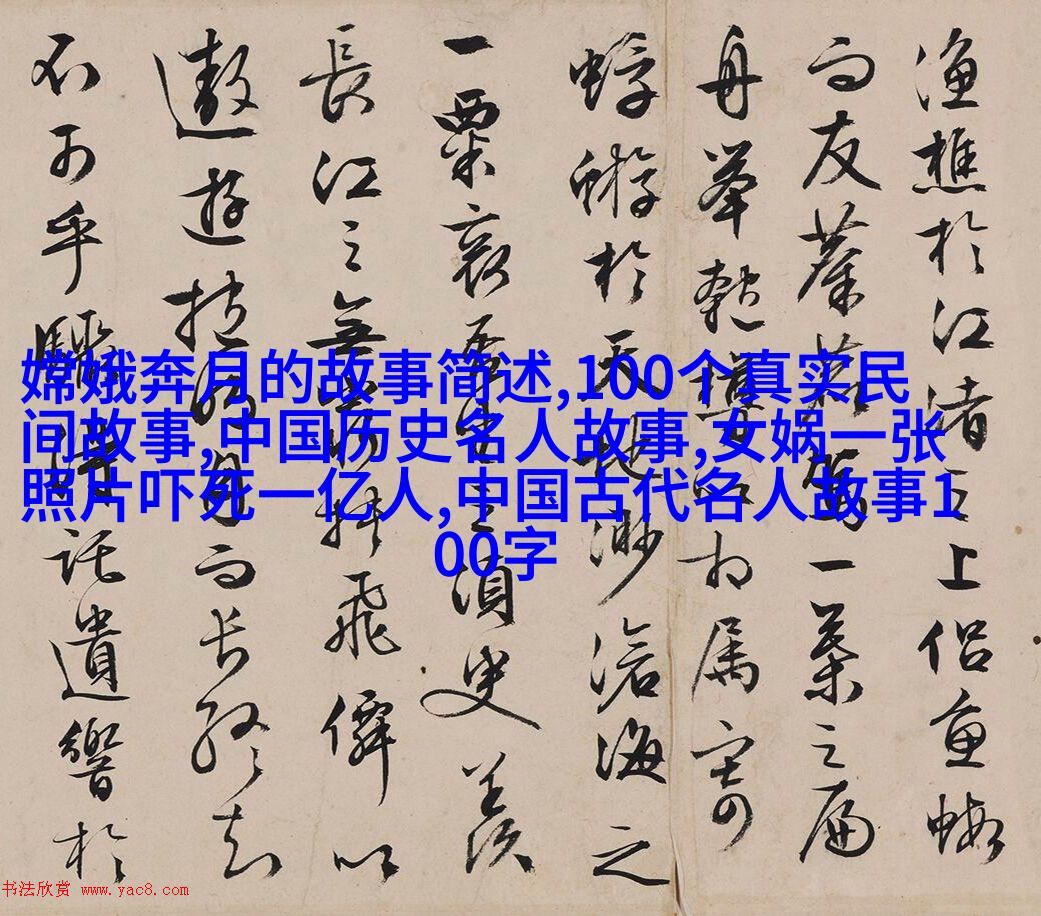 渔樵於江渚之上侶魚蝦
而友麋鹿駕一葉之扁
舟舉匏樽以相属寄
蜉蝣於天地渺滄海之
一粟哀吾生之須臾羨
長江之無窮挾飛僊以
遨遊抱明月而長終知
不可乎驟得託遺響於
嫦娥奔月的故事简述,100个真实民
间故事,中国历史名人故事,女娲一张
照片吓死一亿人,中国古代名人故事1
00字
书法欣赏 www.yac8.com